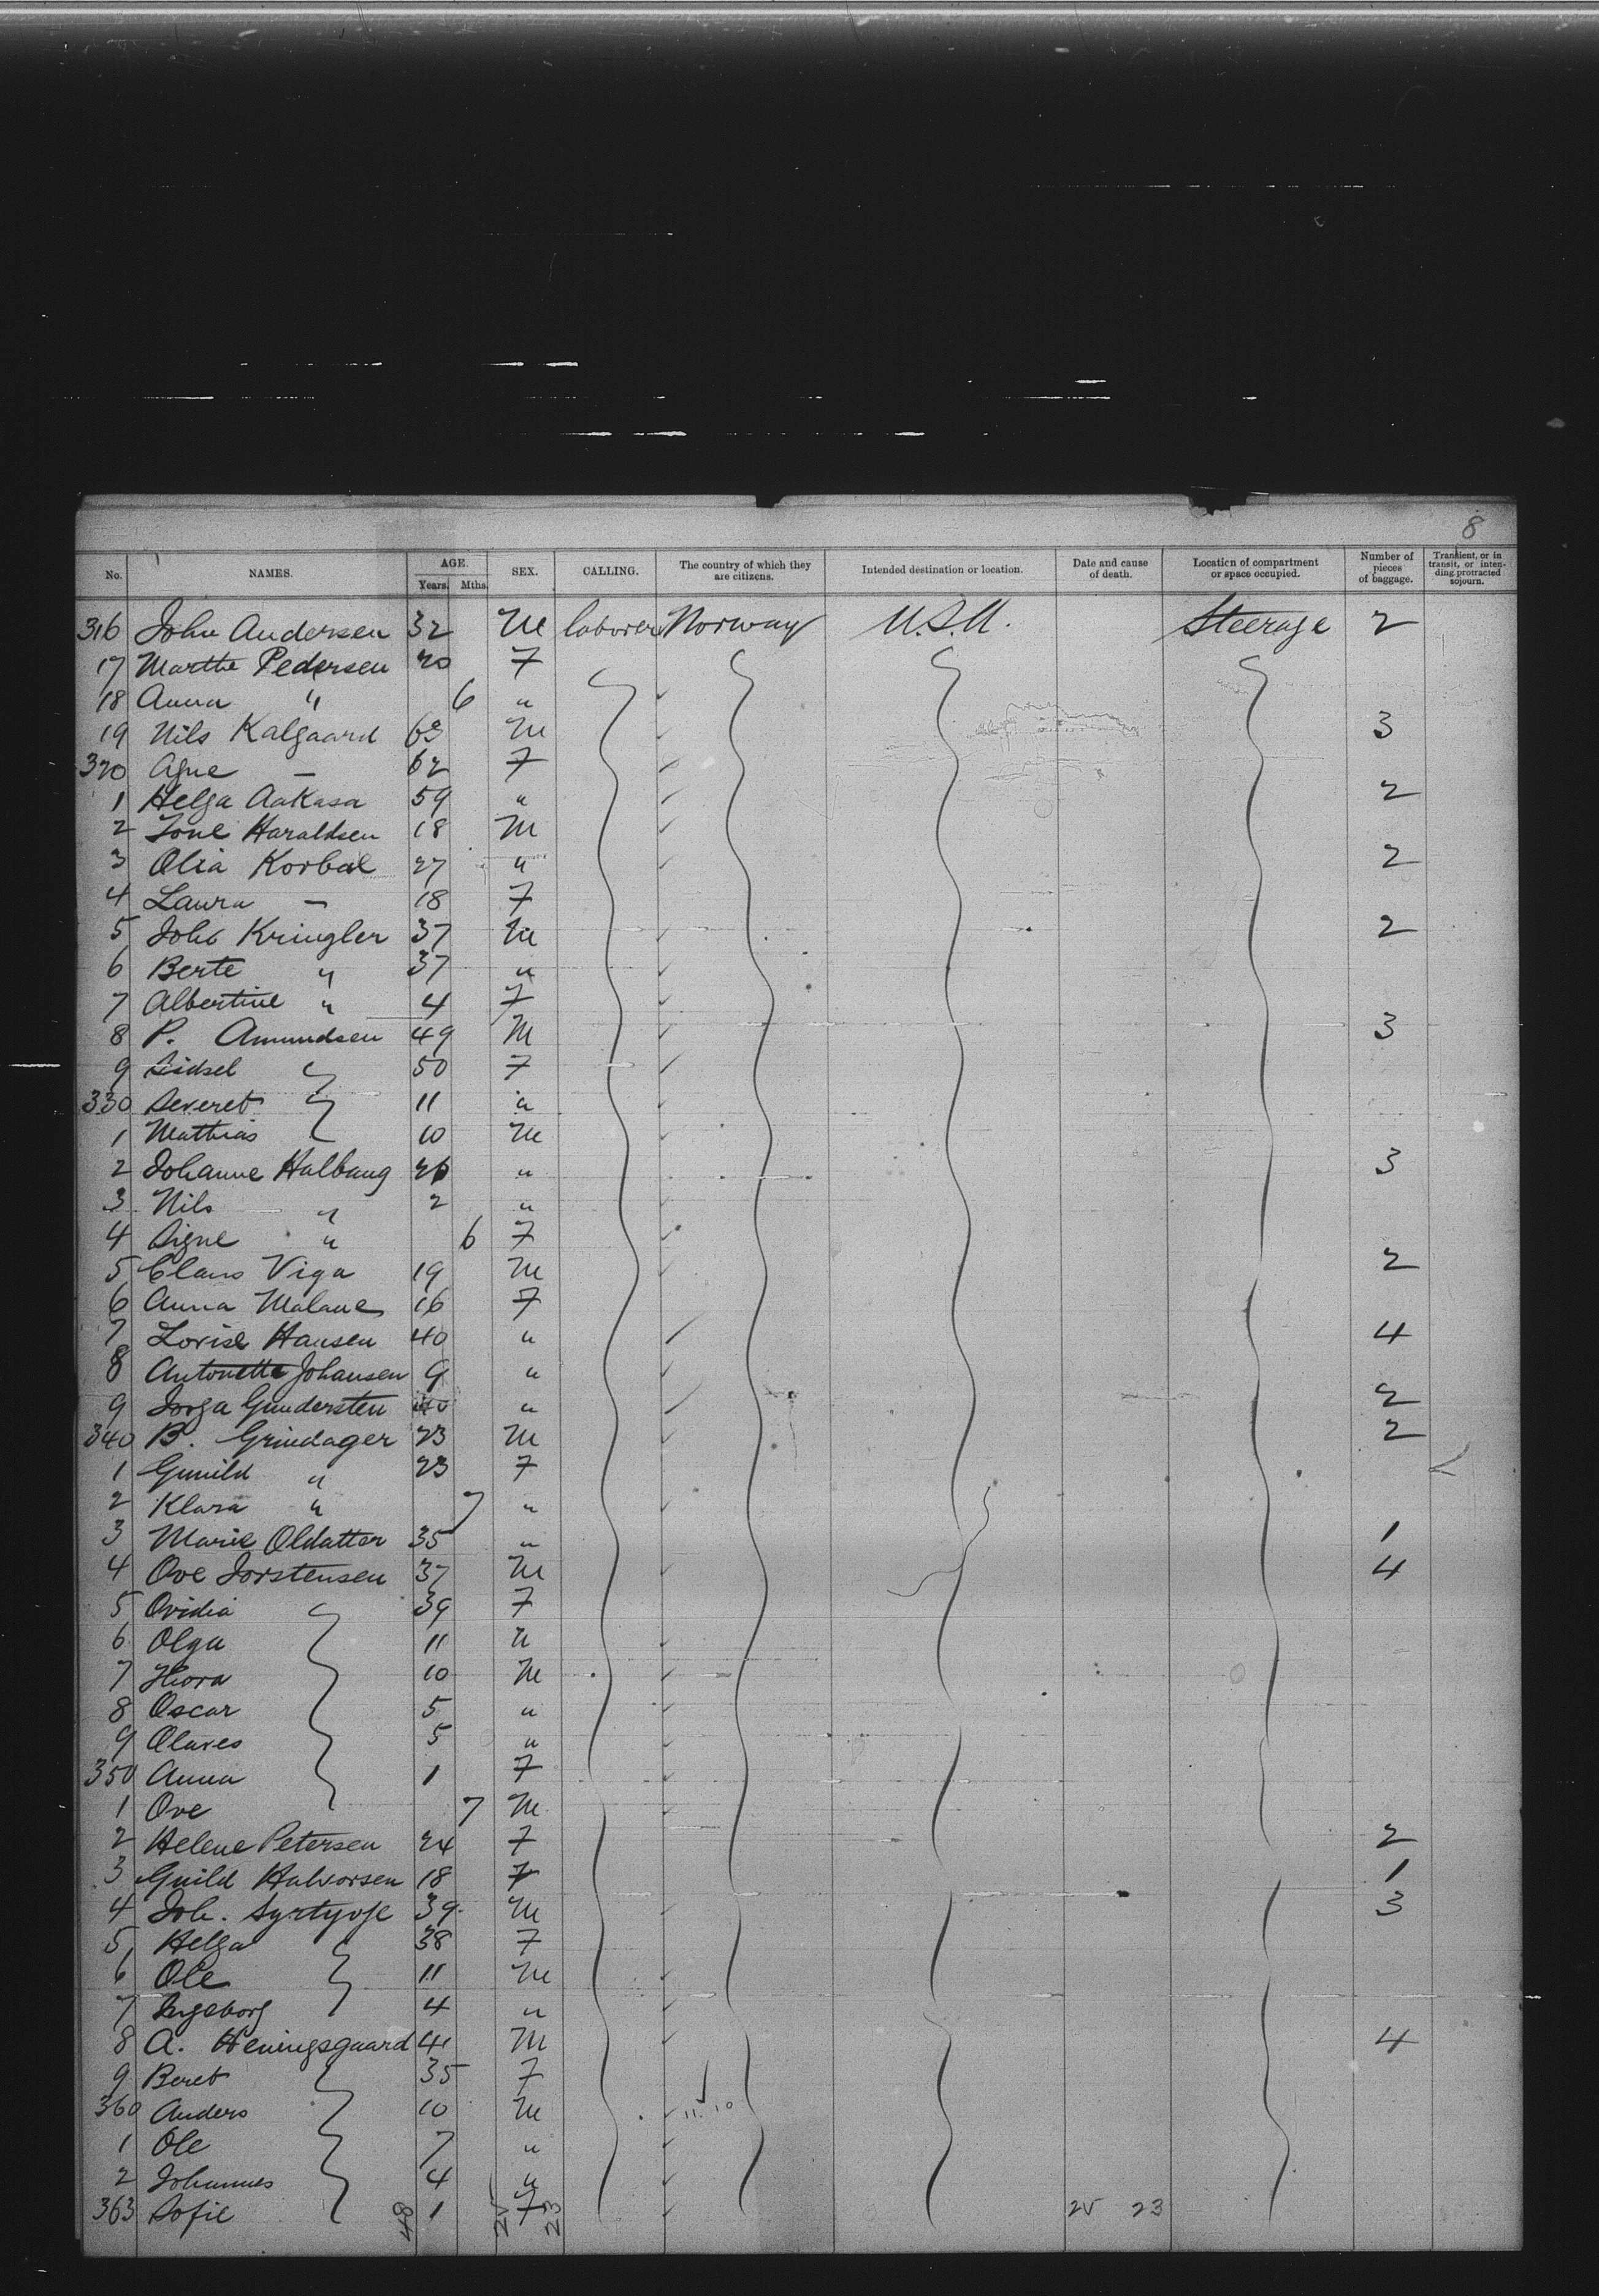 8
No. NAMES. AGE. Years. Mths. SEX. CALLING. The country of which they are citizens. Intended destination or location. Date and cause of death. Location of compartment or space occupied. Number of pieces of baggage. Transient, or in transit, or intending protracted sojourn.
316 John Andersen 32 M laborer Norway U.S.A. Steerage 2
17 Marthe Pedersen 20 F
18 Anna " 6 "
19 Nils Kalgaard 63 M 3
320 Agne — 62 F
1 Helga Aakasa 59 " 2
2 Tone Haraldsen 18 M
3 Olia Korbal 27 " 2
4 Laura — 18 F
5 Joh Kringler 37 M 2
6 Berte " 37 "
7 Albertine " 4 F
8 P. Amundsen 49 M 3
9 Sidsel 50 F
330 Severet 11 "
1 Mathias 10 M
2 Johanne Halbaug 26 " 3
3 Nils " 2 "
4 Signe " 6 F
5 Claus Viga 19 M 2
6 Anna Malane 16 F
7 Lovise Hansen 40 " 4
8 Antonette Johansen 9 "
9 Jorga Gundersten 40 " 2
340 B. Grindager 23 M 2
1 Gunild " 23 F
2 Klara " 7 "
3 Marie Oldatter 35 " 1
4 Ove Torstensen 37 M 4
5 Ovidia 39 F
6 Olga 11 "
7 Thora 10 M
8 Oscar 5 "
9 Olaves 5 "
350 Anna 1 F
1 Ove 7 M
2 Helene Petersen 24 F 2
3 Guild Halvorsen 18 F 1
4 Joh. 39 M 3
5 Helga 38 F
6 Ole 11 M
7 Ingeborg 4 "
8 A. Heningsgaard 41 M 4
9 Beret 35 F
360 Anders 10 M 11.10
1 Ole 7 "
2 Johannes 4 "
363 Sofie 48 1 25 F 23 25 23